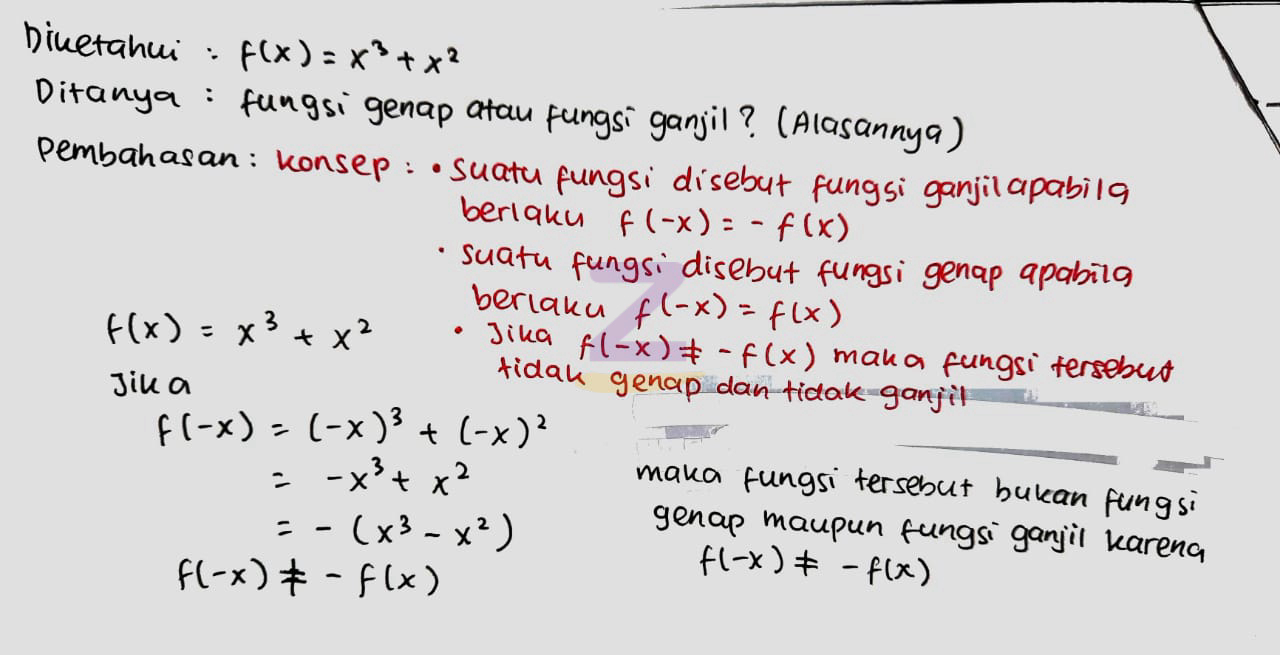 Diketahui : f(x) = x³ + x²
Ditanya : fungsi genap atau fungsi ganjil? (Alasannya)
Pembahasan : konsep : • suatu fungsi disebut fungsi ganjil apabila
berlaku f(-x) = - f(x)
• suatu fungsi disebut fungsi genap apabila
berlaku f(-x) = f(x)
• Jika f(-x) ≠ - f(x) maka fungsi tersebut
tidak genap dan tidak ganjil
f(x) = x³ + x²
Jika
f(-x) = (-x)³ + (-x)²
= -x³ + x²
= - (x³ - x²)
f(-x) ≠ - f(x)
maka fungsi tersebut bukan fungsi
genap maupun fungsi ganjil karena
f(-x) ≠ -f(x)
Z